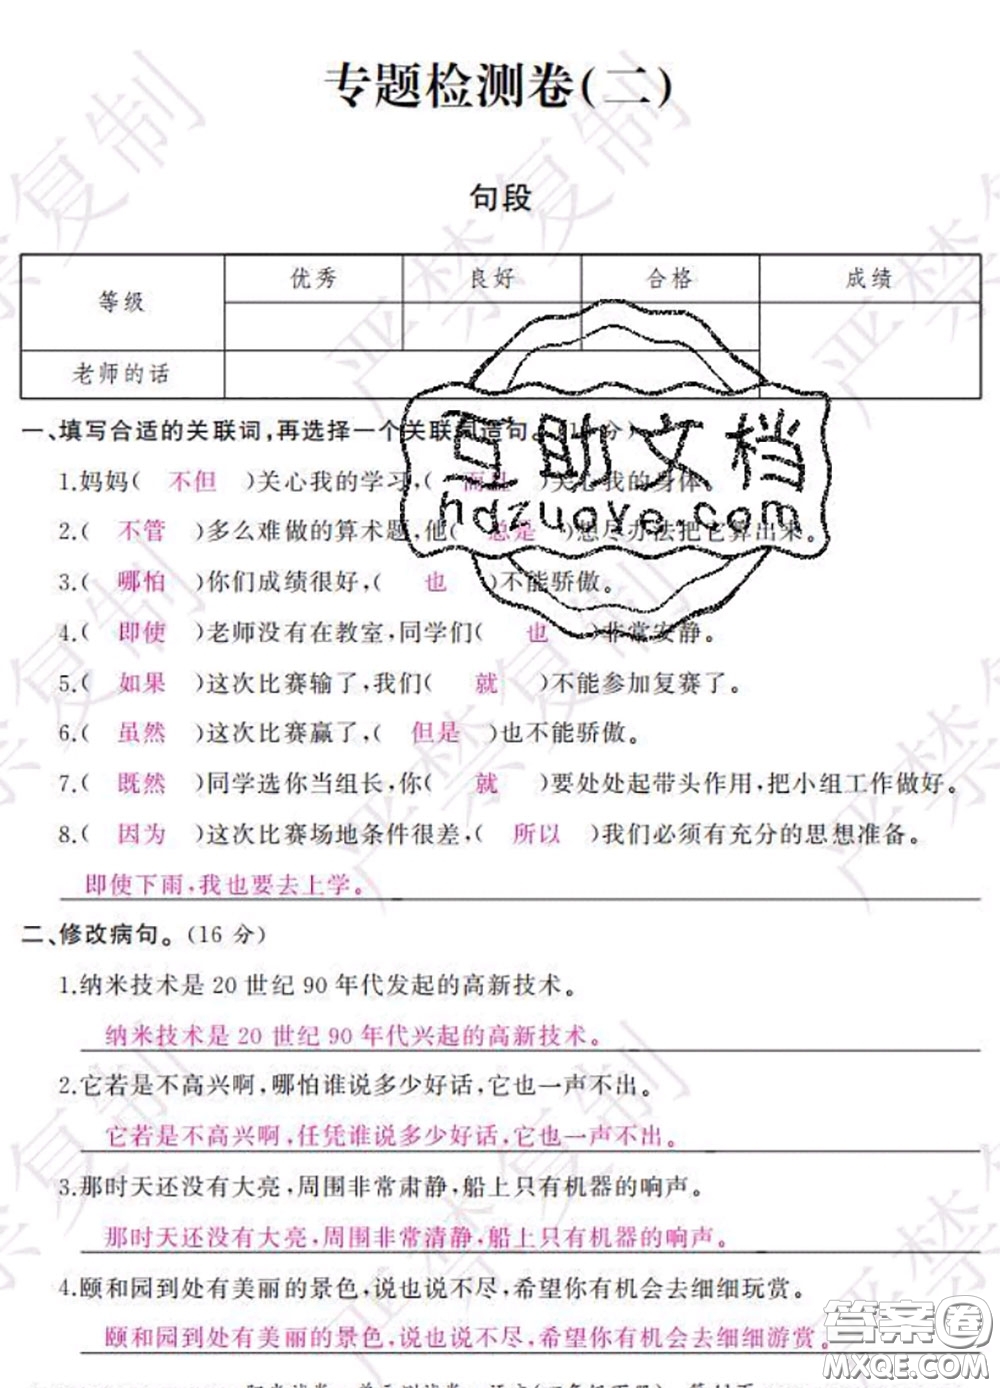 专题检测卷(二)
句段
等级 优秀 良好 合格 成绩
老师的话
一、填写合适的关联词,再选择一个关联词造句。(1 分)
1.妈妈( 不但 )关心我的学习,( 而且 )关心我的身体。
2.( 不管 )多么难做的算术题,他( 总是 )想尽办法把它算出来。
3.( 哪怕 )你们成绩很好,( 也 )不能骄傲。
4.( 即使 )老师没有在教室,同学们( 也 )非常安静。
5.( 如果 )这次比赛输了,我们( 就 )不能参加复赛了。
6.( 虽然 )这次比赛赢了,( 但是 )也不能骄傲。
7.( 既然 )同学选你当组长,你( 就 )要处处起带头作用,把小组工作做好。
8.( 因为 )这次比赛场地条件很差,( 所以 )我们必须有充分的思想准备。
即使下雨,我也要去上学。
二、修改病句。(16 分)
1.纳米技术是 20 世纪 90 年代发起的高新技术。
纳米技术是 20 世纪 90 年代兴起的高新技术。
2.它若是不高兴啊,哪怕谁说多少好话,它也一声不出。
它若是不高兴啊,任凭谁说多少好话,它也一声不出。
3.那时天还没有大亮,周围非常肃静,船上只有机器的响声。
那时天还没有大亮,周围非常清静,船上只有机器的响声。
4.颐和园到处有美丽的景色,说也说不尽,希望你有机会去细细玩赏。
颐和园到处有美丽的景色,说也说不尽,希望你有机会去细细游赏。
互助文档
hdzuoye.com
严禁复制
答案卷
MXQE.COM